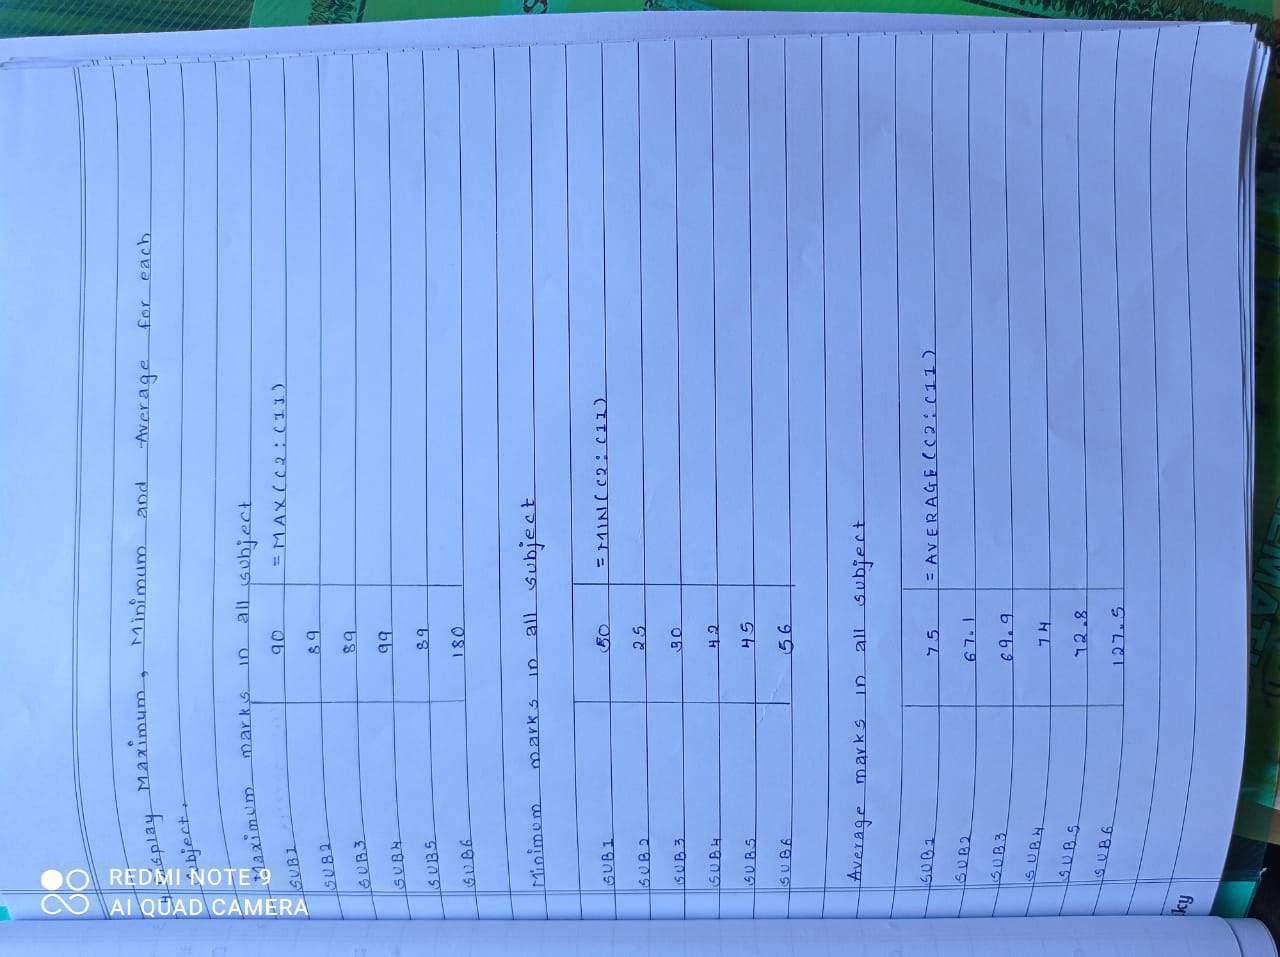 Display Maximum, Minimum and Average for each
subject.
Maximum marks in all subject
SUB1 90 =MAX(C2:C11)
SUB2 89
SUB3 89
SUB4 99
SUB5 89
SUB6 180
Minimum marks in all subject
SUB1 50 =MIN(C2:C11)
SUB2 25
SUB3
SUB4 42
SUB5 45
SUB6 56
Average marks in all subject
SUB1 75 =AVERAGE(C2:C11)
SUB2 67.1
SUB3 69.9
SUB4 74
SUB5 72.8
SUB6 127.5
ky
REDMI NOTE 9
AI QUAD CAMERA